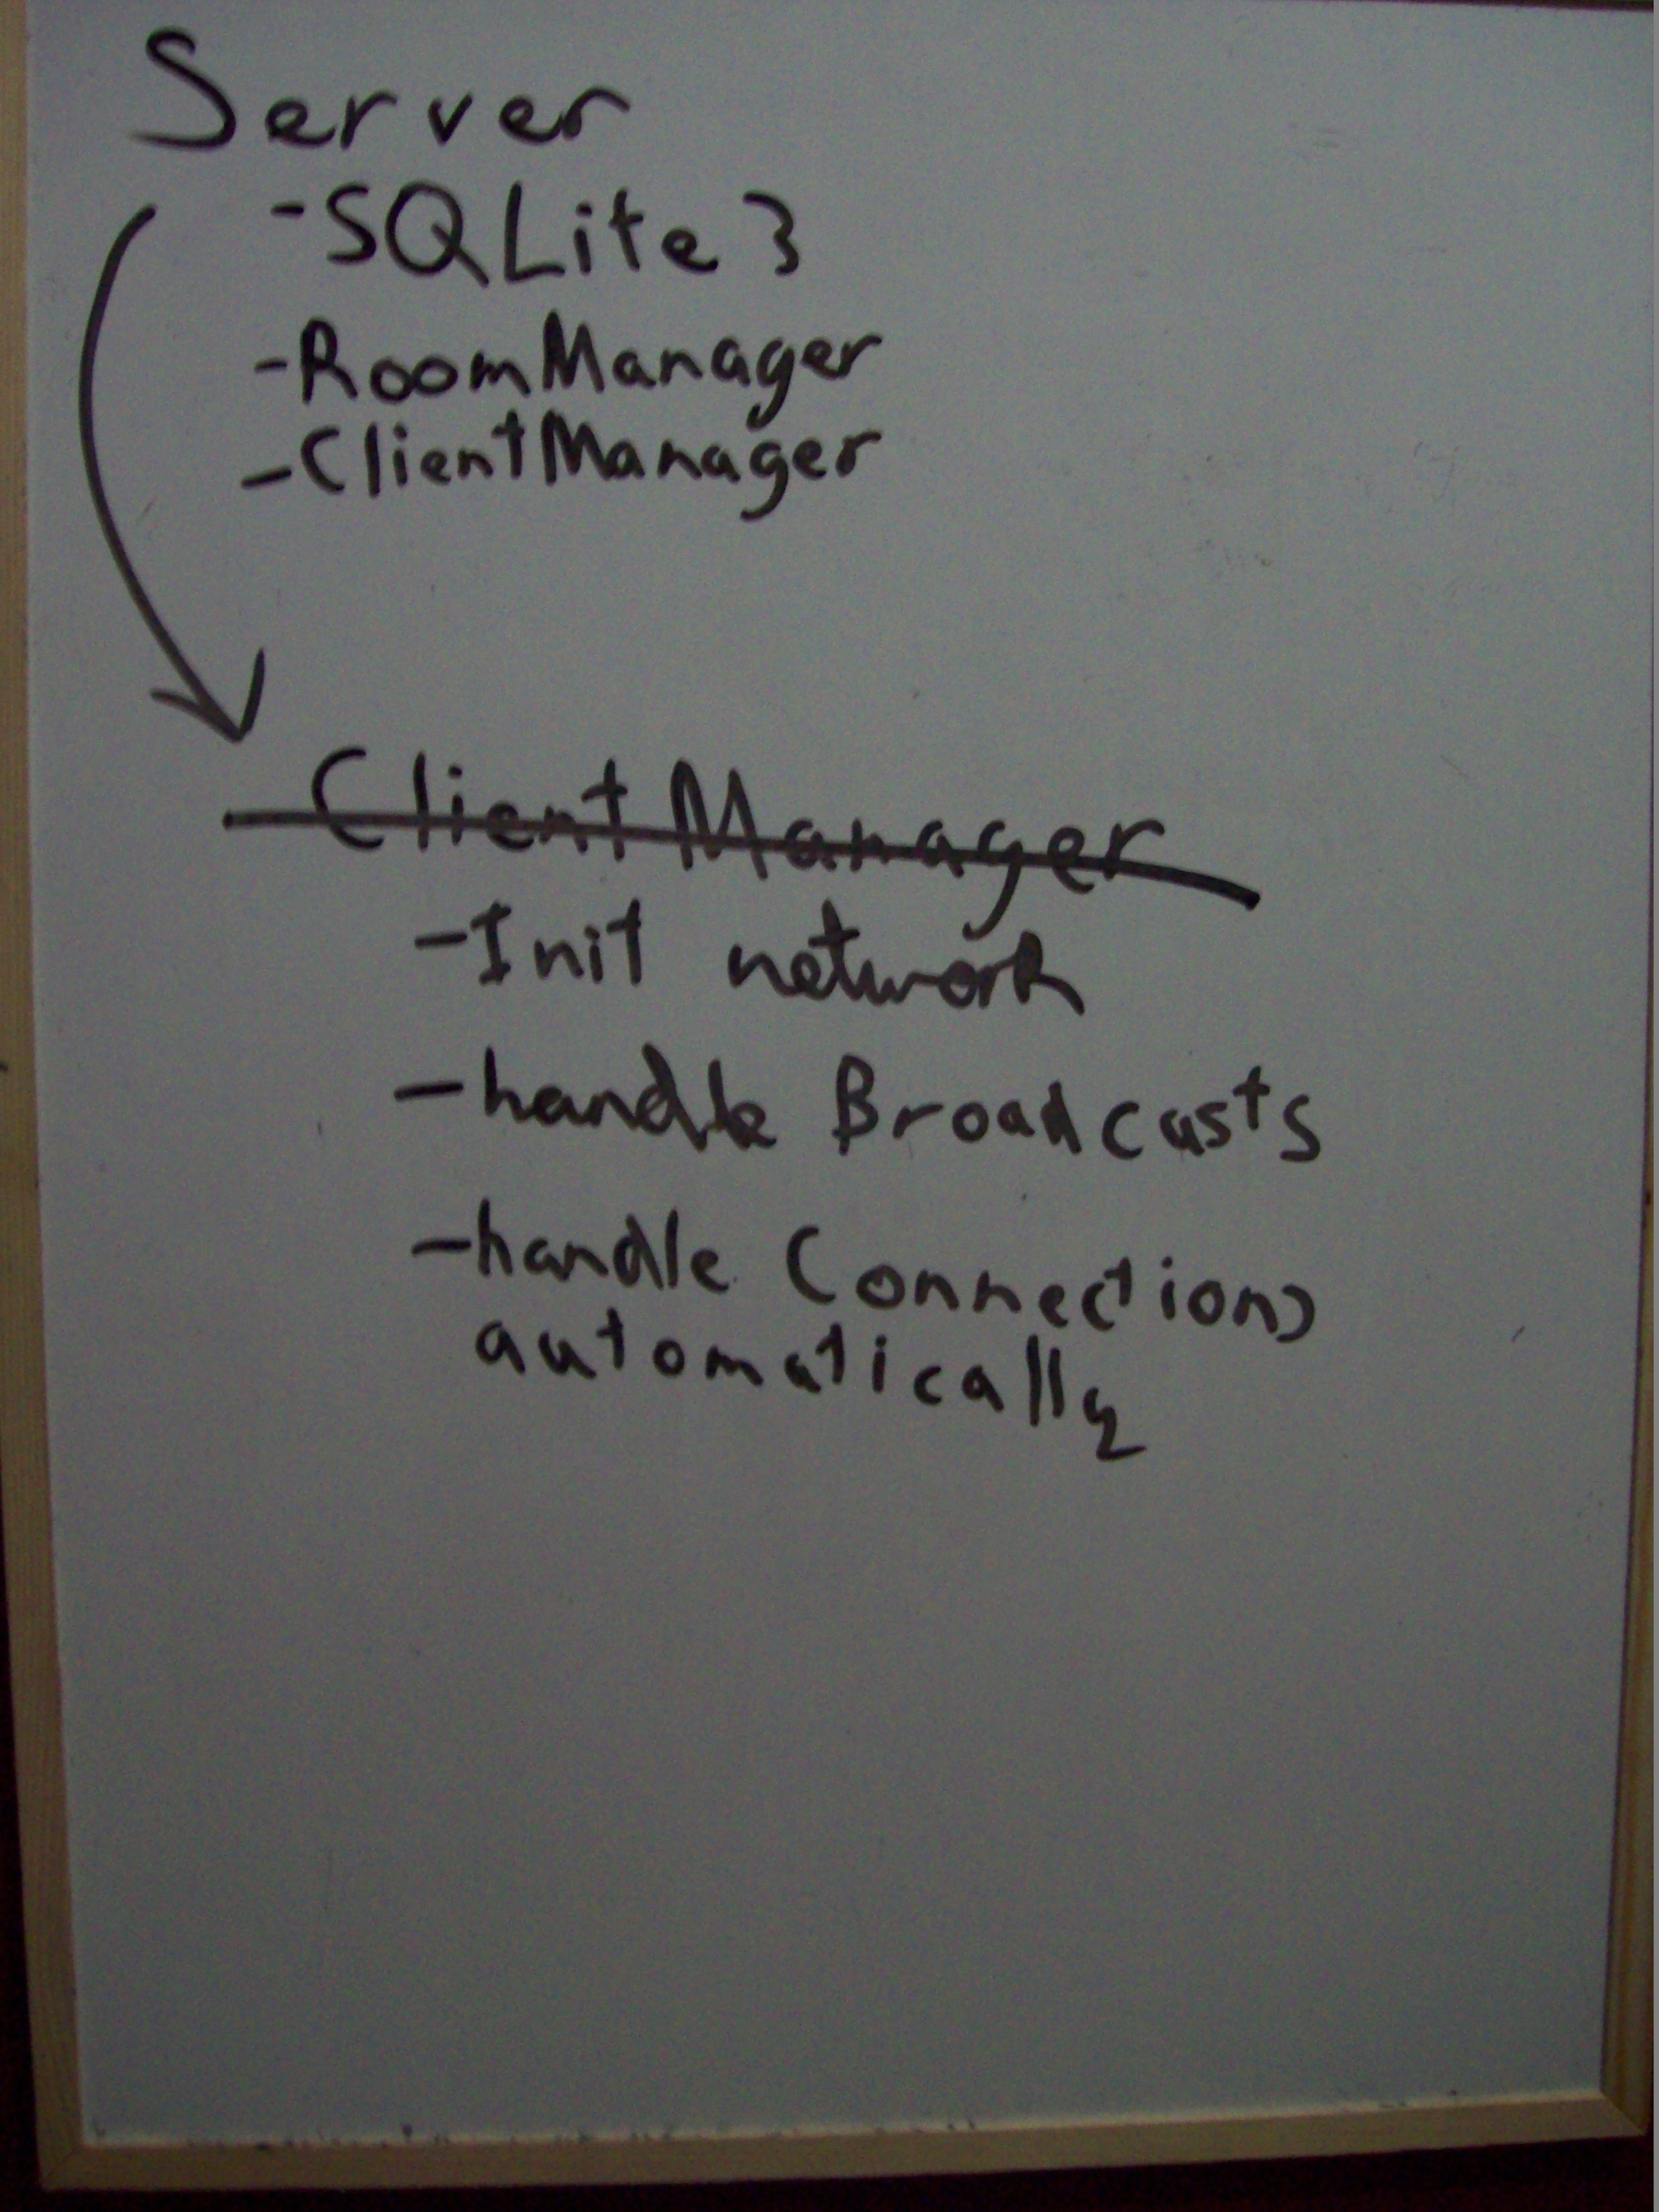 Server
-SQLite 3
-RoomManager
-ClientManager
Client Manager
-Init network
-handle Broadcasts
-handle Connections
automatically